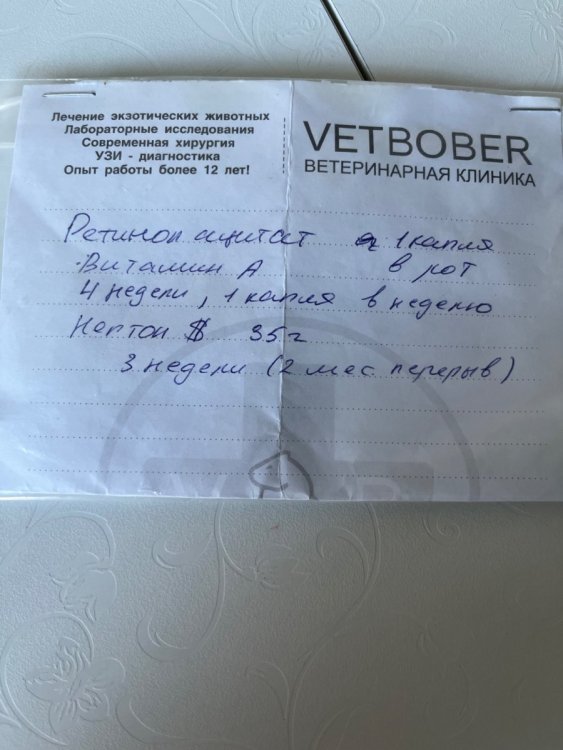 Лечение экзотических животных
Лабораторные исследования
Современная хирургия
УЗИ - диагностика
Опыт работы более 12 лет!
VETBOBER
ВЕТЕРИНАРНАЯ КЛИНИКА
Ретинол ацитат 1 капля
Витамин А в рот
4 недели, 1 капля в неделю
Нептон 35 г
3 недели (2 мес перерыв)